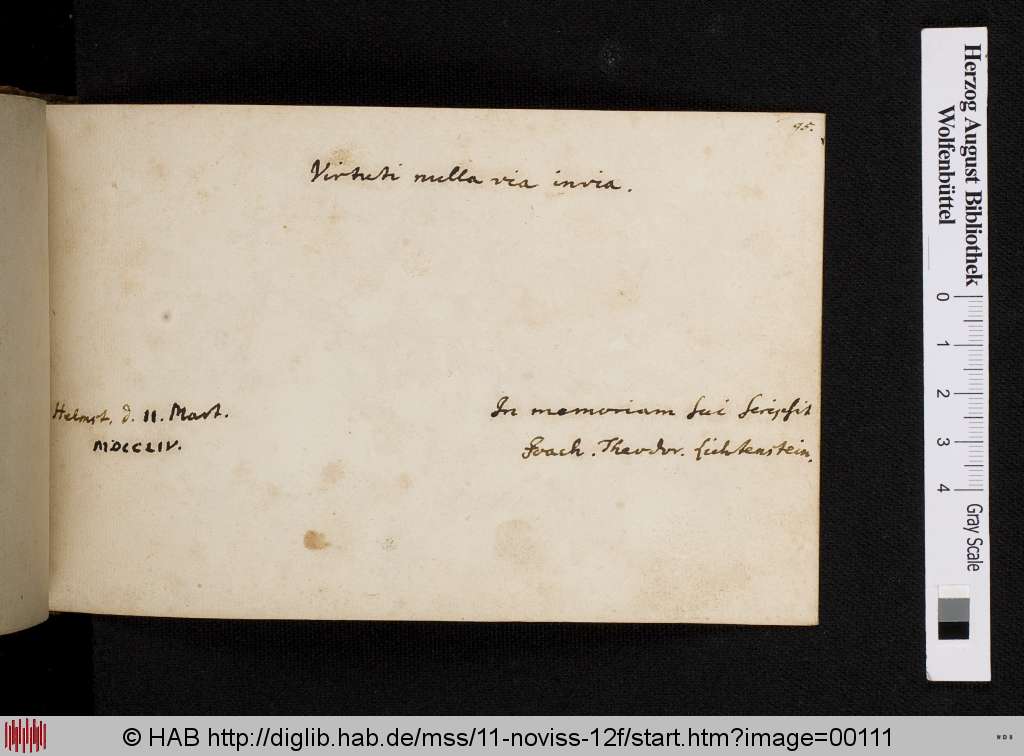 95.
Virtuti nulla via invia.
Helmst. d. 11. Mart.
MDCCLIV.
In memoriam sui scripsit
Joach. Theodor. Lichtenstein.
Herzog August Bibliothek
Wolfenbüttel
0 1 2 3 4
Gray Scale
© HAB http://diglib.hab.de/mss/11-noviss-12f/start.htm?image=00111